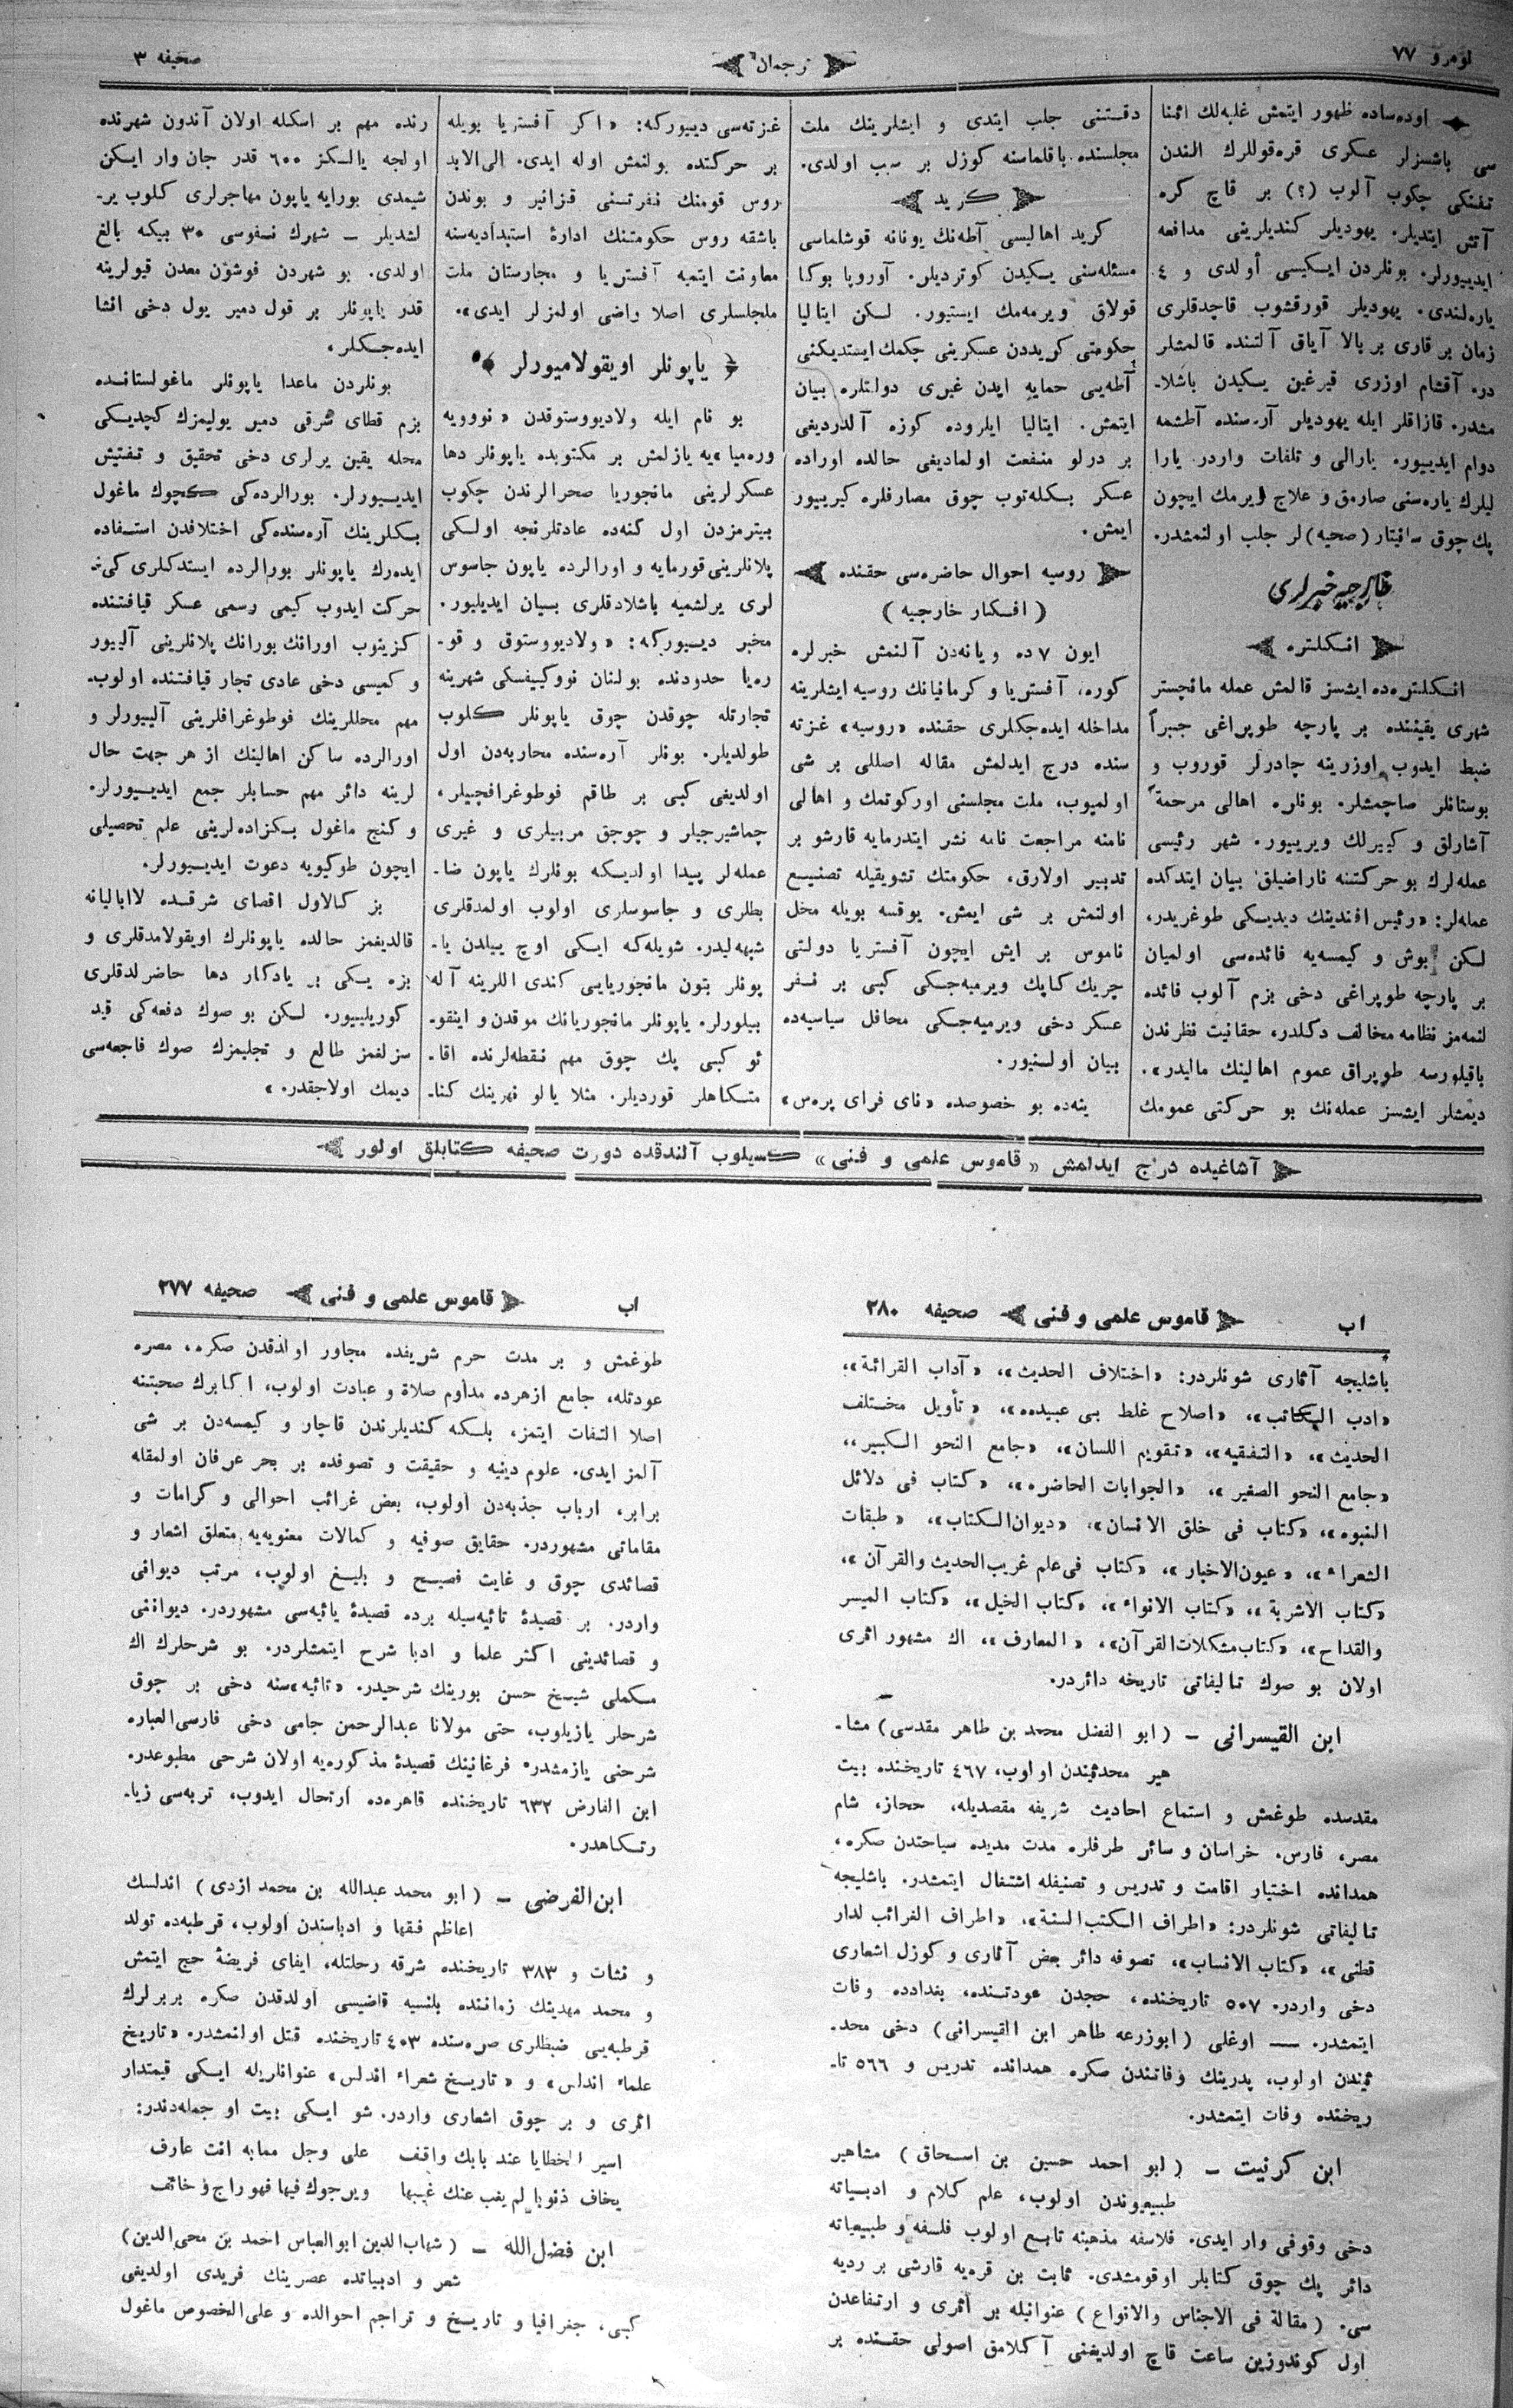 نومرو ۷۷
ترجمان
صحیفه ۳
اوده‌ساده ظهور ایتمش غلبه‌لك اثنا
سی باشسزلر عسکری قره‌قوللرك الندن
تفنکی چکوب آلوب (؟) بر قاچ کره
آتش ایتدیلر. یهودیلر کندیلرینی مدافعه
ایدییورلر. بونلردن ایکیسی أولدی و ٤
یاره‌لندی. یهودیلر قورقشوب قاچدقلری
زمان بر قاری بر بالا آیاق آلتنده قالمشلر
در. آقشام اوزری قیرغین یکیدن باشلا-
مشدر. قازاقلر ایله یهودیلر آره‌سنده آطشمه
دوام ایدییور. یارالی و تلفات واردر. یارا
لیلرك یاره‌سنی صارمق و علاج ویرمك ایچون
پك چوق سانیتار (صحیه) لر جلب اولنمشدر.
خارجیه خبرلری
انکلتره
انکلتره‌ده ایشسز قالمش عمله مانچستر
شهری یقیننده بر پارچه طوپراغی جبراً
ضبط ایدوب اوزرینه چادرلر قوروب و
بوستانلر صاچمشلر. بونلره اهالی مرحمةً
آشارلق و کییرلك ویرییور. شهر رئیسی
عمله‌لرك بو حرکتنه ناراضیلق بیان ایتدکده
عمله‌لر: «رئیس افندینك دیدیکی طوغریدر،
لکن بوش و کیمسه‌یه فائده‌سی اولمیان
بر پارچه طوپراغی دخی بزم آلوب فائده
لنمه‌مز نظامه مخالف دکلدر، حقانیت نظرندن
باقیلورسه طوپراق عموم اهالینك مالیدر».
دیمشلر ایشسز عمله‌نك بو حرکتی عمومك
دقتنی جلب ایتدی و ایشلرینك ملت
مجلسنده باقلماسنه کوزل بر سبب اولدی.
کرید
کرید اهالیسی آطه‌نك یونانه قوشلماسی
مسئله‌سنی یکیدن کوتردیلر. آوروپا بوکا
قولاق ویرمه‌مك ایستیور. لکن ایتالیا
حکومتی کریددن عسکرینی چکمك ایستدیکنی
آطه‌یی حمایه ایدن غیری دولتلره بیان
ایتمش. ایتالیا ایلروده کوزه آلدردیغی
بر درلو منفعت اولمادیغی حالده اوراده
عسکر بکله‌توب چوق مصارفلره کیرییور
ایمش.
روسیه احوال حاضره‌سی حقنده
(افکار خارجیه)
ایون ۷ ده ویانه‌دن آلنمش خبرلره
کوره، آفستریا و کرمانیانك روسیه ایشلرینه
مداخله ایده‌جکلری حقنده «روسیه» غزته
سنده درج ایدلمش مقاله اصللی بر شی
اولمیوب، ملت مجلسنی اورکوتمك و اهالی
نامنه مراجعت نامه نشر ایتدرمایه قارشو بر
تدبیر اولارق، حکومتك تشویقیله تصنیع
اولنمش بر شی ایمش. یوقسه بویله مخل
ناموس بر ایش ایچون آفستریا دولتی
چریك کاپك ویرمیه‌جکی کبی بر نفر
عسکر دخی ویرمیه‌جکی محافل سیاسیه‌ده
بیان اولنیور.
ینه‌ده بو خصوصده «نای فرای پره‌س»
غزته‌سی دییورکه: «اکر آفستریا بویله
بر حرکتده بولنمش اوله ایدی. الی‌الابد
روس قومنك نفرتنی قزانیر و بوندن
باشقه روس حکومتنك ادارهٔ استبدادیه‌سنه
معاونت ایتمیه آفستریا و مجارستان ملت
مجلسلری اصلا راضی اولمزلر ایدی».
یاپونلر اویقولامیورلر
بو نام ایله ولادیووستوقدن «نوویه
وره‌میا»یه یازلمش بر مکتوبده یاپونلر دها
عسکرلرینی مانجوریا صحرالرندن چکوب
بیترمزدن اول کنه‌ده عادتلرنجه اولکی
پلانلرینی قورمایه و اورالرده یاپون جاسوس
لری یرلشمیه باشلادقلری بیان ایدیلیور.
مخبر دییورکه: «ولادیووستوق و قو-
ره‌یا حدودنده بولنان نووکییفسکی شهرینه
تجارتله چوقدن چوق یاپونلر کلوب
طولدیلر. بونلر آره‌سنده محاربه‌دن اول
اولدیغی کبی بر طاقم فوطوغرافچیلر،
چماشیرجیلر و چوجق مربیلری و غیری
عمله‌لر پیدا اولدیکه بونلرك یاپون ضا-
بطلری و جاسوسلری اولوب اولمدقلری
شبهه‌لیدر. شویله‌که ایکی اوچ ییلدن یا-
پونلر بتون مانجوریایی کندی اللرینه آله
بیلورلر. یاپونلر مانجوریانك موقدن و اینقو-
ئو کبی پك چوق مهم نقطه‌لرنده اقا-
متکاهلر قوردیلر. مثلا یالو نهرینك کنا-
رنده مهم بر اسکله اولان آندون شهرنده
اولجه یالکز ۶۰۰ قدر جان وار ایکن
شیمدی بورایه یاپون مهاجرلری کلوب یر-
لشدیلر — شهرك نفوسی ۳۰ بیکه بالغ
اولدی. بو شهردن فوشؤن معدن قیولرینه
قدر یاپونلر بر قول دمیر یول دخی انشا
ایده‌جکلر.
بونلردن ماعدا یاپونلر ماغولستانده
بزم قطای شرقی دمیر یولیمزك کچدیکی
محله یقین یرلری دخی تحقیق و تفتیش
ایدییورلر. بورالرده‌کی کچوك ماغول
بکلرینك آره‌سنده‌کی اختلافدن استفاده
ایده‌رك یاپونلر بورالرده ایستدکلری کی-
حرکت ایدوب کیمی رسمی عسکر قیافتنده
کزینوب اورانك بورانك پلانلرینی آلییور
و کمیسی دخی عادی تجار قیافتنده اولوب-
مهم محللرینك فوطوغرافلرینی آلییورلر و
اورالرده ساکن اهالینك از هر جهت حال
لرینه دائر مهم حسابلر جمع ایدییورلر.
و کنج ماغول بکزاده‌لرینی علم تحصیلی
ایچون طوکیویه دعوت ایدییورلر.
بز کالاول اقصای شرقده لاابالیانه
قالدیغمز حالده یاپونلرك اویقولامدقلری و
بزه یکی بر یادکار دها حاضرلدقلری
کوریلییور. لکن بو صوك دفعه‌کی قید
سزلغمز طالع و تجلیمزك صوك فاجعه‌سی
دیمك اولاجقدر.»
آشاغیده درج ایدلمش «قاموس علمی و فنی» کسیلوب آلندقده دورت صحیفه کتابلق اولور
اب
قاموس علمی و فنی
صحیفه ۲۸۰
باشلیجه آثاری شونلردر: «اختلاف الحدیث»، «آداب القرائة»،
«ادب الکاتب»، «اصلاح غلط بی عبیده»، «تأویل مختلف
الحدیث»، «التفقیه»، «تقویم اللسان»، «جامع النحو الکبیر»،
«جامع النحو الصغیر»، «الجوابات الحاضره»، «کتاب فی دلائل
النبوه»، «کتاب فی خلق الانسان»، «دیوان الکتاب»، «طبقات
الشعراء»، «عیون الاخبار»، «کتاب فی علم غریب الحدیث والقرآن»،
«کتاب الاشربة»، «کتاب الانواء»، «کتاب الخیل»، «کتاب المیسر
والقداح»، «کتاب مشکلات القرآن»، «المعارف»، اك مشهور اثری
اولان بو صوك تالیفاتی تاریخه دائردر.
ابن القیسرانی — (ابو الفضل محمد بن طاهر مقدسی) مشا-
هیر محدثیندن اولوب، ٤٦٧ تاریخنده بیت
مقدسده طوغمش و استماع احادیث شریفه مقصدیله، حجاز، شام
مصر، فارس. خراسان و سائر طرفلره مدت مدیده سیاحتدن صکره،
همدانده اختیار اقامت و تدریس و تصنیفله اشتغال ایتمشدر. باشلیجه
تالیفاتی شونلردر: «اطراف الکتب الستة»، «اطراف الغرائب لدار
قطنی»، «کتاب الانساب»، تصوفه دائر بعض آثاری و کوزل اشعاری
دخی واردر. ٥٠٧ تاریخنده، حجدن عودتنده، بغدادده وفات
ایتمشدر. — اوغلی (ابوزرعه طاهر ابن القیسرانی) دخی محد-
ثیندن اولوب، پدرینك وفاتندن صکره همدانده تدریس و ٥٦٦ تا-
ریخنده وفات ایتمشدر.
ابن کرنیت — (ابو احمد حسین بن اسحاق) مشاهیر
طبیعیوندن اولوب، علم کلام و ادبیاته
دخی وقوفی وار ایدی. فلاسفه مذهبنه تابع اولوب فلسفه و طبیعیاته
دائر پك چوق کتابلر اوقومشدی. ثابت بن قره‌یه قارشی بر ردیه
سی. (مقالة فی الاجناس والانواع) عنوانیله بر اثری و ارتفاعدن
اول کوندوزین ساعت قاچ اولدیغنی آکلامق اصولی حقنده بر
اب
قاموس علمی و فنی
صحیفه ۲۷۷
طوغمش و بر مدت حرم شریفده مجاور اولدقدن صکره، مصره
عودتله، جامع ازهرده مداوم صلاة و عبادت اولوب، اکابرك صحبتنه
اصلا التفات ایتمز، بلکه کندیلرندن قاچار و کیمسه‌دن بر شی
آلمز ایدی. علوم دینیه و حقیقت و تصوفده بر بحر عرفان اولمقله
برابر، ارباب جذبه‌دن اولوب، بعض غرائب احوالی و کرامات و
مقاماتی مشهوردر. حقایق صوفیه و کمالات معنویه‌یه متعلق اشعار و
قصائدی چوق و غایت فصیح و بلیغ اولوب، مرتب دیوانی
واردر. بر قصیدهٔ تائیه‌سیله برده قصیدهٔ یائیه‌سی مشهوردر. دیواننی
و قصائدینی اکثر علما و ادبا شرح ایتمشلردر. بو شرحلرك اك
مکملی شیخ حسن بورینك شرحیدر. «تائیه»سنه دخی بر چوق
شرحلر یازیلوب، حتی مولانا عبدالرحمن جامی دخی فارسی العباره
شرحنی یازمشدر. فرغانینك قصیدهٔ مذکوره‌یه اولان شرحی مطبوعدر.
ابن الفارض ٦٣٢ تاریخنده قاهره‌ده ارتحال ایدوب، تربه‌سی زیا-
رتکاهدر.
ابن الفرضی — (ابو محمد عبدالله بن محمد ازدی) اندلسك
اعاظم فقها و ادباسندن اولوب، قرطبه‌ده تولد
و نشات و ٣٨٣ تاریخنده شرقه رحلتله، ایفای فریضهٔ حج ایتمش
و محمد مهدینك زماننده بلنسیه قاضیسی اولدقدن صکره بربرلرك
قرطبه‌یی ضبطلری صره‌سنده ٤٠٣ تاریخنده قتل اولنمشدر. «تاریخ
علماء اندلس» و «تاریخ شعراء اندلس» عنوانلریله ایکی قیمتدار
اثری و بر چوق اشعاری واردر. شو ایکی بیت او جمله‌دندر:
اسیر الخطایا عند بابك واقف علی وجل ممابه انت عارف
یخاف ذنوبا لم یغب عنك غیبها ویرجوك فیها فهو راج و خائف
ابن فضل الله — (شهاب الدین ابو العباس احمد بن محی الدین)
شعر و ادبیاتده عصرینك فریدی اولدیغی
کبی، جغرافیا و تاریخ و تراجم احوالده و علی الخصوص ماغول